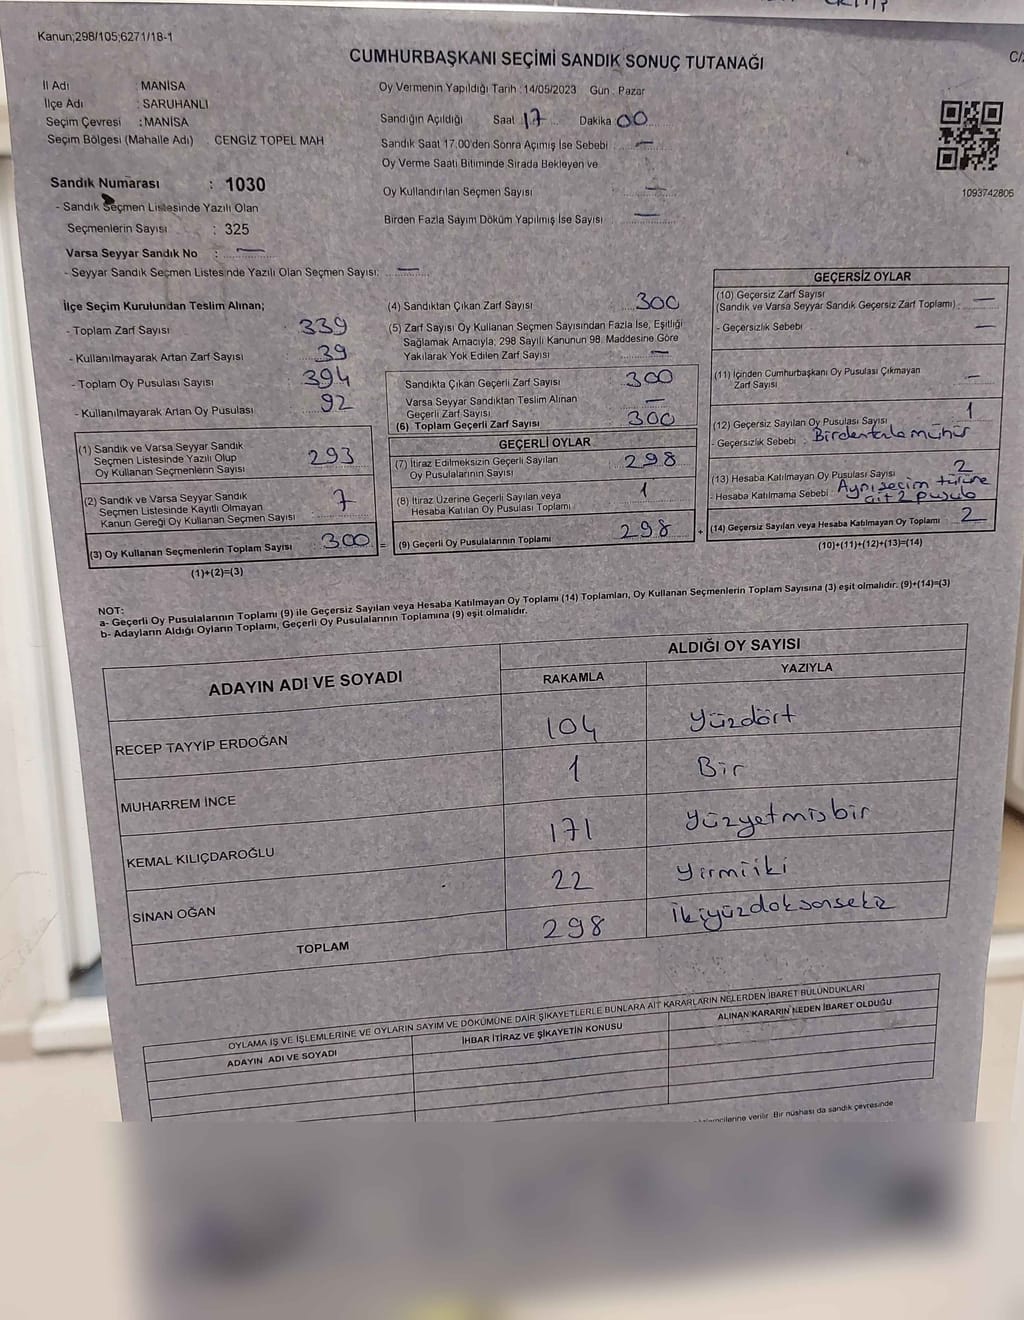 Kanun;298/105;6271/18-1
CUMHURBAŞKANI SEÇİMİ SANDIK SONUÇ TUTANAĞI
C/
İl Adı : MANİSA
İlçe Adı : SARUHANLI
Seçim Çevresi : MANİSA
Seçim Bölgesi (Mahalle Adı) CENGİZ TOPEL MAH
Sandık Numarası : 1030
- Sandık Seçmen Listesinde Yazılı Olan
Seçmenlerin Sayısı : 325
Varsa Seyyar Sandık No : —
- Seyyar Sandık Seçmen Listes nde Yazılı Olan Seçmen Sayısı: —
Oy Vermenin Yapıldığı Tarih : 14/05/2023 Gün . Pazar
Sandığın Açıldığı Saat 17 Dakika 00
Sandık Saat 17.00'den Sonra Açımış İse Sebebi : —
Oy Verme Saati Bitiminde Sırada Bekleyen ve
Oy Kullandırılan Seçmen Sayısı —
Birden Fazla Sayım Döküm Yapılmış İse Sayısı —
1093742806
İlçe Seçim Kurulundan Teslim Alınan;
- Toplam Zarf Sayısı : 339
- Kullanılmayarak Artan Zarf Sayısı : 39
- Toplam Oy Pusulası Sayısı : 394
- Kullanılmayarak Artan Oy Pusulası : 92
(1) Sandık ve Varsa Seyyar Sandık
Seçmen Listesinde Yazılı Olup
Oy Kullanan Seçmenlerin Sayısı : 293
(2) Sandık ve Varsa Seyyar Sandık
Seçmen Listesinde Kayıtlı Olmayan
Kanun Gereği Oy Kullanan Seçmen Sayısı : 7
(3) Oy Kullanan Seçmenlerin Toplam Sayısı : 300 =
(1)+(2)=(3)
(4) Sandıktan Çıkan Zarf Sayısı : 300
(5) Zarf Sayısı Oy Kullanan Seçmen Sayısından Fazla İse, Eşitliği
Sağlamak Amacıyla; 298 Sayılı Kanunun 98. Maddesine Göre
Yakılarak Yok Edilen Zarf Sayısı : —
Sandıkta Çıkan Geçerli Zarf Sayısı : 300
Varsa Seyyar Sandıktan Teslim Alınan
Geçerli Zarf Sayısı : —
(6) Toplam Geçerli Zarf Sayısı : 300
GEÇERLİ OYLAR
(7) İtiraz Edilmeksizin Geçerli Sayılan
Oy Pusulalarının Sayısı : 298
(8) İtiraz Üzerine Geçerli Sayılan veya
Hesaba Katılan Oy Pusulası Toplamı : 1
(9) Geçerli Oy Pusulalarının Toplamı : 298 +
GEÇERSİZ OYLAR
(10) Geçersiz Zarf Sayısı
(Sandık ve Varsa Seyyar Sandık Geçersiz Zarf Toplamı) : —
- Geçersizlik Sebebi : —
(11) İçinden Cumhurbaşkanı Oy Pusulası Çıkmayan
Zarf Sayısı : —
(12) Geçersiz Sayılan Oy Pusulası Sayısı : 1
- Geçersizlik Sebebi : Birdenfazla mühür
(13) Hesaba Katılmayan Oy Pusulası Sayısı 2
- Hesaba Katılmama Sebebi Aynı seçim türüne
ait 2 pusula
(14) Geçersiz Sayılan veya Hesaba Katılmayan Oy Toplamı : 2
(10)+(11)+(12)+(13)=(14)
NOT:
a- Geçerli Oy Pusulalarının Toplamı (9) ile Geçersiz Sayılan veya Hesaba Katılmayan Oy Toplamı (14) Toplamları, Oy Kullanan Seçmenlerin Toplam Sayısına (3) eşit olmalıdır. (9)+(14)=(3)
b- Adayların Aldığı Oyların Toplamı, Geçerli Oy Pusulalarının Toplamına (9) eşit olmalıdır.
ADAYIN ADI VE SOYADI
ALDIĞI OY SAYISI
RAKAMLA YAZIYLA
RECEP TAYYİP ERDOĞAN 104 Yüzdört
MUHARREM İNCE 1 Bir
KEMAL KILIÇDAROĞLU 171 Yüzyetmişbir
SİNAN OĞAN 22 Yirmiiki
TOPLAM 298 İkiyüzdoksansekiz
OYLAMA İŞ VE İŞLEMLERİNE VE OYLARIN SAYIM VE DÖKÜMÜNE DAİR ŞİKAYETLERLE BUNLARA AİT KARARLARIN NELERDEN İBARET BULUNDUKLARI
ADAYIN ADI VE SOYADI İHBAR İTİRAZ VE ŞİKAYETİN KONUSU ALINAN KARARIN NEDEN İBARET OLDUĞU
verilir. Bir nüshası da sandık çevresinde